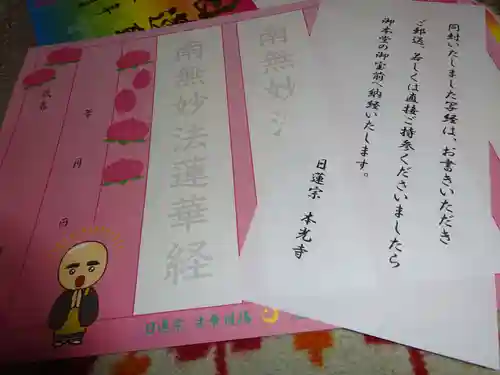 同封いたしました写経は、お書きいただき
ご郵送、若しくは直接ご持参くださいましたら
御本堂の御宝前へ納経いたします。
日蓮宗 本光寺
南無妙
南無妙法蓮華経
年
月
日